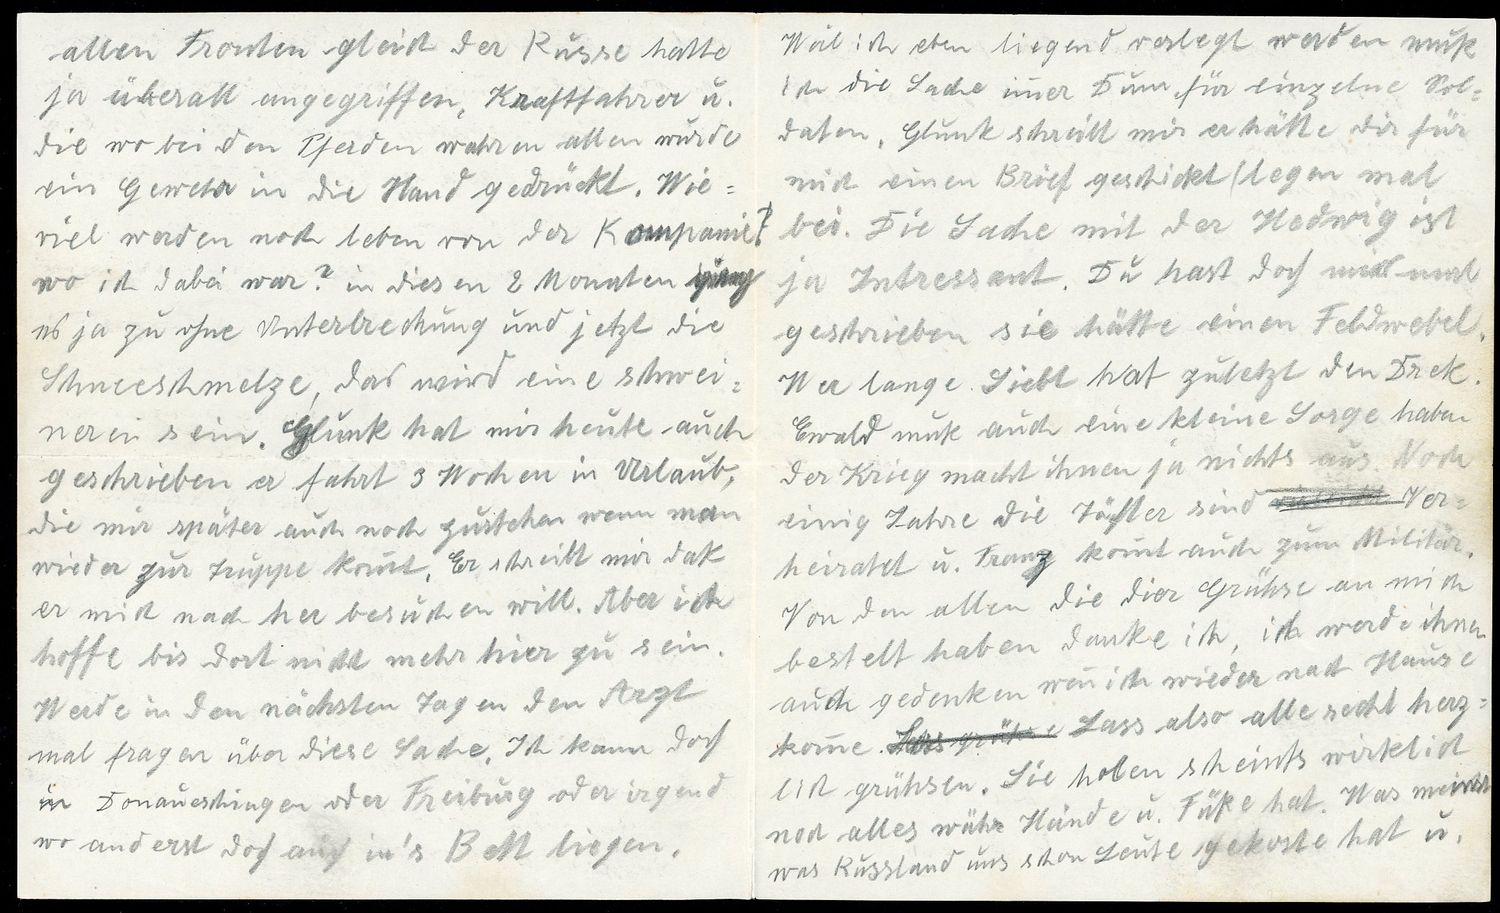 allen Fronten gleich der Russe hatte
ja überall angegriffen, Kraftfahrer u.
die wo bei den Pferden wahren allen wurde
ein Gewehr in die Hand gedrückt. Wie=
viel werden noch leben von der Kompanie?
wo ich dabei war? in diesen 2 Monaten ging
es ja zu ohne Unterbrechung und jetzt die
Schneeschmelze, das wird eine schwei=
nerei sein. Glunk hat mir heute auch
geschrieben er fahrt 3 Wochen in Urlaub,
die mir später auch noch zustehen wenn man
wieder zur Truppe komt. Er schreibt mir daß
er mich nach her besuchen will. Aber ich
hoffe bis dort nicht mehr hier zu sein.
Werde in den nächsten Tagen den Arzt
mal fragen über diese Sache. Ich kann doch
in Donaueschingen oder Freiburg oder irgend
wo anderst doch auch in's Bett liegen.
Weil ich eben liegend verlegt werden muß
ist die Sache imer Dum für einzelne Sol=
daten. Glunk schreibt mir er hätte dir für
mich einen Brief geschickt (legen mal
bei. Die Sache mit der Hedwig ist
ja Intressant. Du hast doch mal
geschrieben sie hätte einen Feldwebel.
Wer lange Siebt hat zuletzt den Drek.
Ewald muß auch eine kleine Sorge haben
der Krieg macht ihnen ja nichts aus Noch
einig Jahre die Töchter sind Ver=
heiratet u. Franz komt auch zum Militär.
Von den allen die dier Grühse an mich
bestelt haben danke ich, ich werde ihnen
auch gedenken wen ich wieder nach Hause
kome. Lass also alle recht herz=
lich grühsen. Sie holen scheints wirklich
noch alles währ Hände u. Füße hat. Was meinst
was Russland uns schon Leute gekoste hat u.